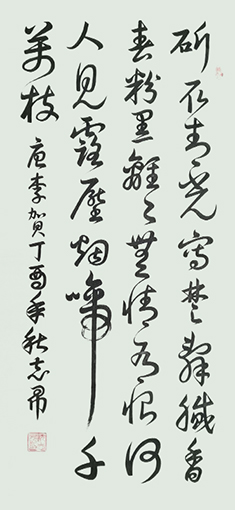 斫取青光寫楚辭膩香
春粉黑離々無情有恨何
人見露壓烟啼千
萬枝 唐李賀丁酉年秋志